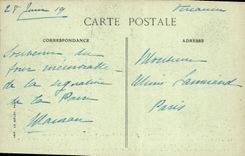 28 Juin 19
CARTE POSTALE
CORRESPONDANCE
ADRESSE
Souvenir du
jour mémorable
de la signature
de la Paix
Maman
Monsieur
Paris